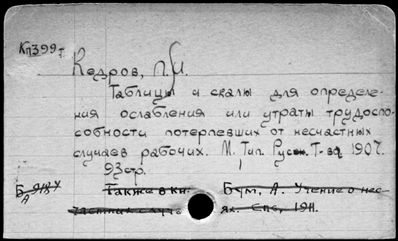 Кп399т
Кедров, П.И.
Таблицы и скалы для определе-
ния ослабления или утраты трудоспо-
собности потерпевших от несчастных
случаев рабочих. М. Тип. Русск. Т-ва 1907.
93стр.
Также в кн. Бум, А. Учение о нес-
частных случа ях. Спб, 1911.